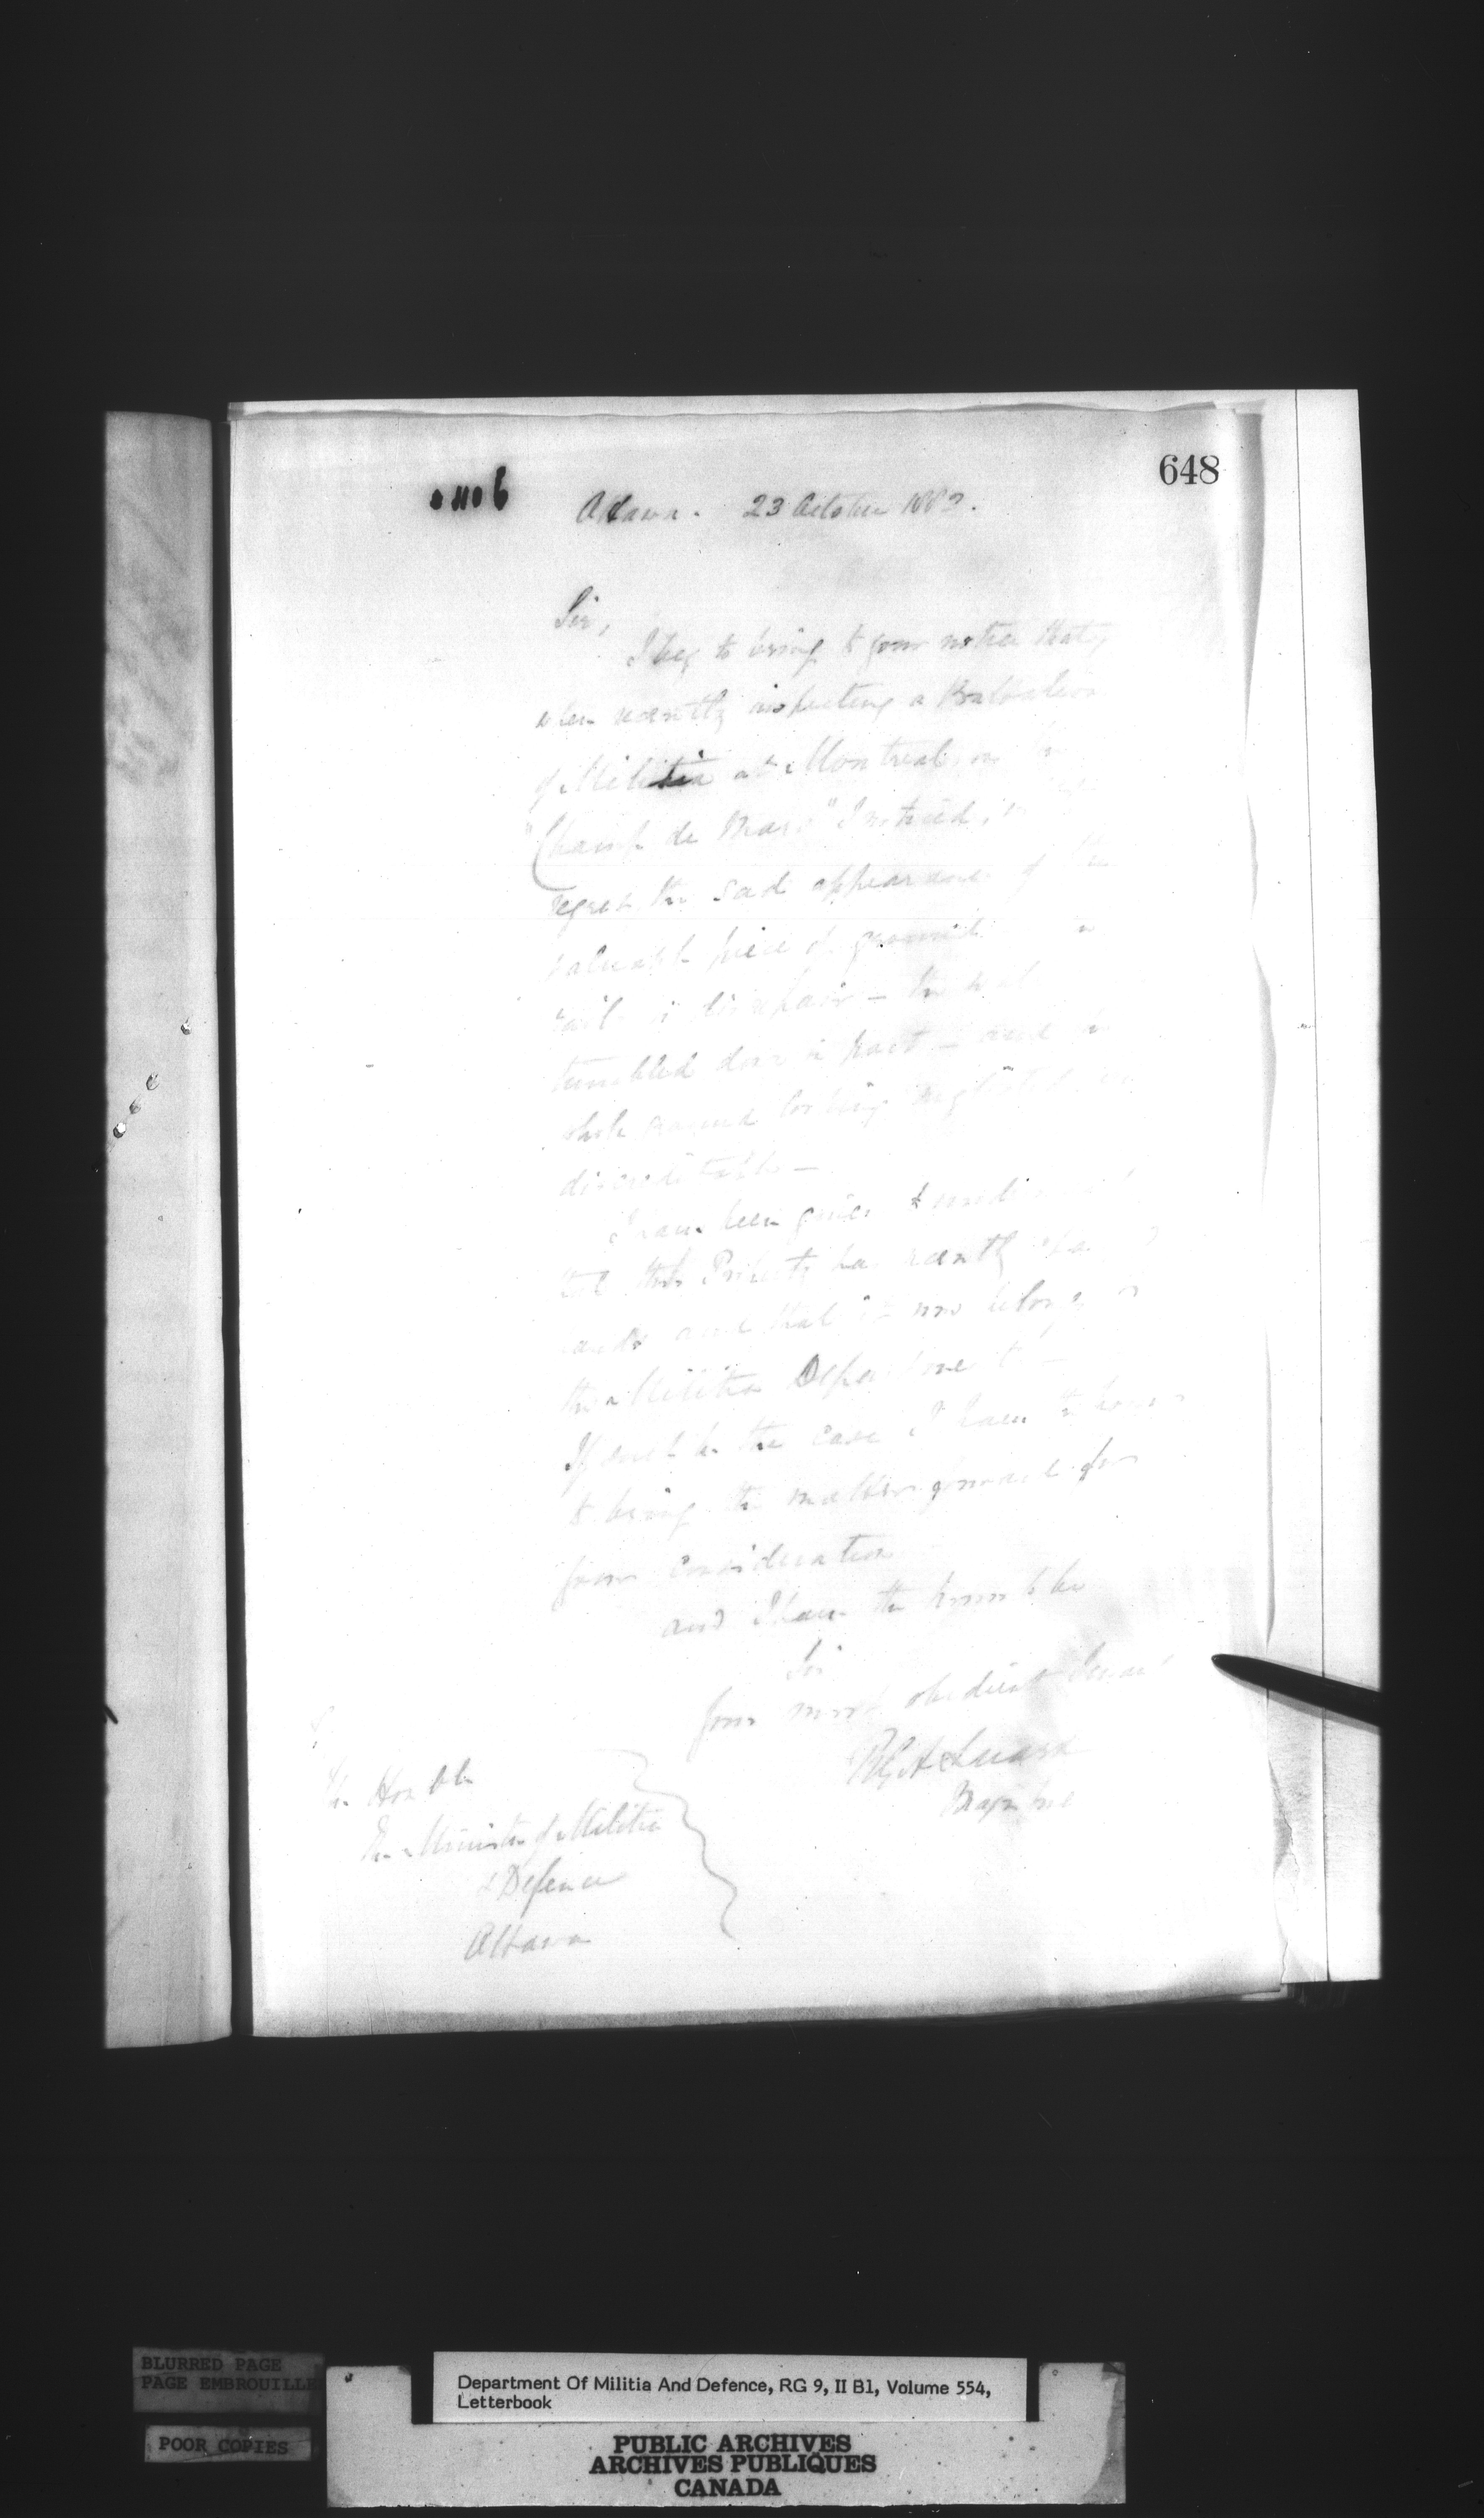 648
Ottawa. 23 October 1883.
Sir,
I beg to bring to your notice that,
when recently inspecting a Battalion
of Militia at Montreal on
"Champ de Mars" I noticed
regret the sad appearance of
valuable piece of ground
in disrepair - the
tumbled down in part - and
whole ground looking neglected
discreditable -
I have been given to
that this Property has recently
hands and that it now belongs
the Militia Department -
If such be the case I have the honor
to bring the matter forward for
your consideration
and I have the honor to be
Sir
Your most obedient Servant
R G A Luard
Major Genl
The Honble
The Minister of Militia
& Defence
Ottawa
BLURRED PAGE
PAGE EMBROUILLE
POOR COPIES
Department Of Militia And Defence, RG 9, II B1, Volume 554,
Letterbook
PUBLIC ARCHIVES
ARCHIVES PUBLIQUES
CANADA